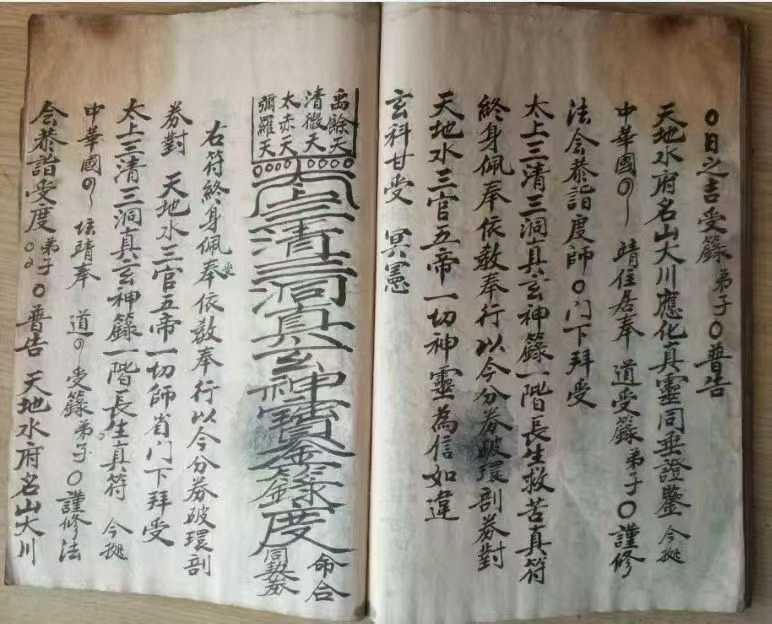 〇日之吉受籙弟子〇普告
天地水府名山大川應化真靈同垂證鑒 今㨗
中華國 靖住居奉 道受籙弟子〇謹修
法会恭詣度師〇门下拜受
太上三清三洞真玄神籙一階長生救苦真符
終身佩奉依教奉行以今分券破環剖券對
天地水三官五帝一切神靈為信如違
玄科甘受 冥憲
禹餘天
清微天
太赤天
彌羅天
太上三清三洞真玄神寶籙度
命合
同契券
右符終身佩奉依教奉行以今分券破環剖
券對 天地水三官五帝一切師省门下拜受
太上三清三洞真玄神籙一階長生真符 今㨗
中華國 坛靖奉 道 受籙弟子〇謹修法
会恭詣受度 弟子〇普告 天地水府名山大川